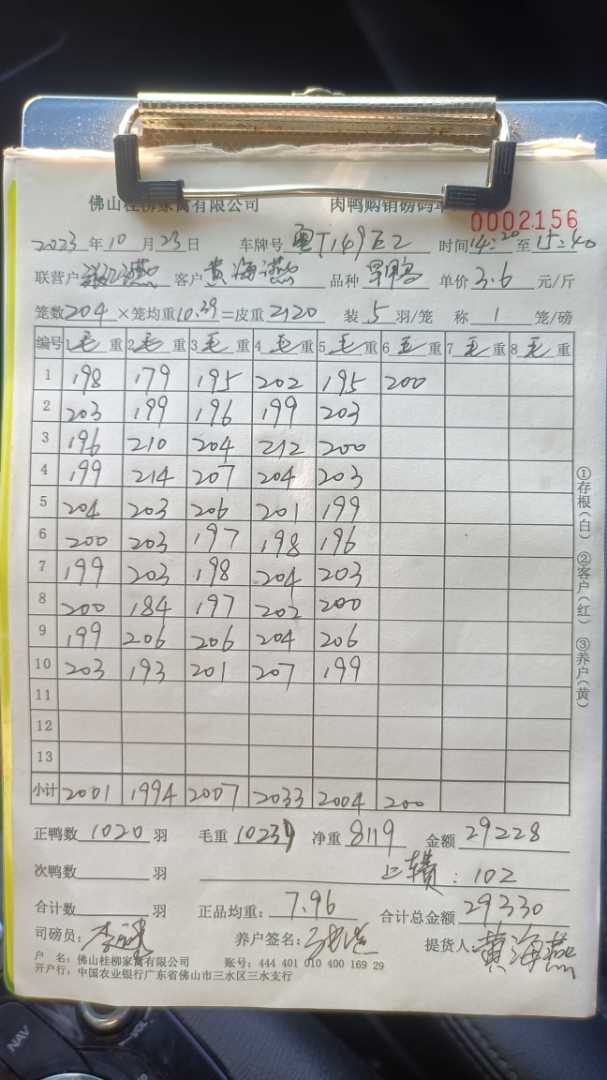 佛山桂柳家禽有限公司 肉鸭购销磅码单
0002156
2023年10月23日 车牌号 粤T149E2 时间14:20至15:40
联营户 客户 黄海燕 品种 旱鸭 单价3.6元/斤
笼数204×笼均重10.39=皮重2120 装5羽/笼 称1笼/磅
编号 1毛重 2毛重 3毛重 4毛重 5毛重 6毛重 7毛重 8毛重
1 198 179 195 202 195 200
2 203 199 196 199 203
3 196 210 204 212 200
4 199 214 207 204 203
5 204 203 206 201 199
6 200 203 197 198 196
7 199 203 198 204 203
8 200 184 197 202 200
9 199 206 206 204 206
10 203 193 201 207 199
11
12
13
小计 2001 1994 2007 2033 2004 200
正鸭数1020羽 毛重10239 净重8119 金额29228
次鸭数 羽 上车费:102
合计数 羽 正品均重:7.96 合计总金额29330
司磅员: 养户签名: 提货人:黄海燕
户 名:佛山桂柳家禽有限公司 账号:444 401 010 400 169 29
开户行:中国农业银行广东省佛山市三水区三水支行
①存根(白) ②客户(红) ③养户(黄)
NAV
VOL